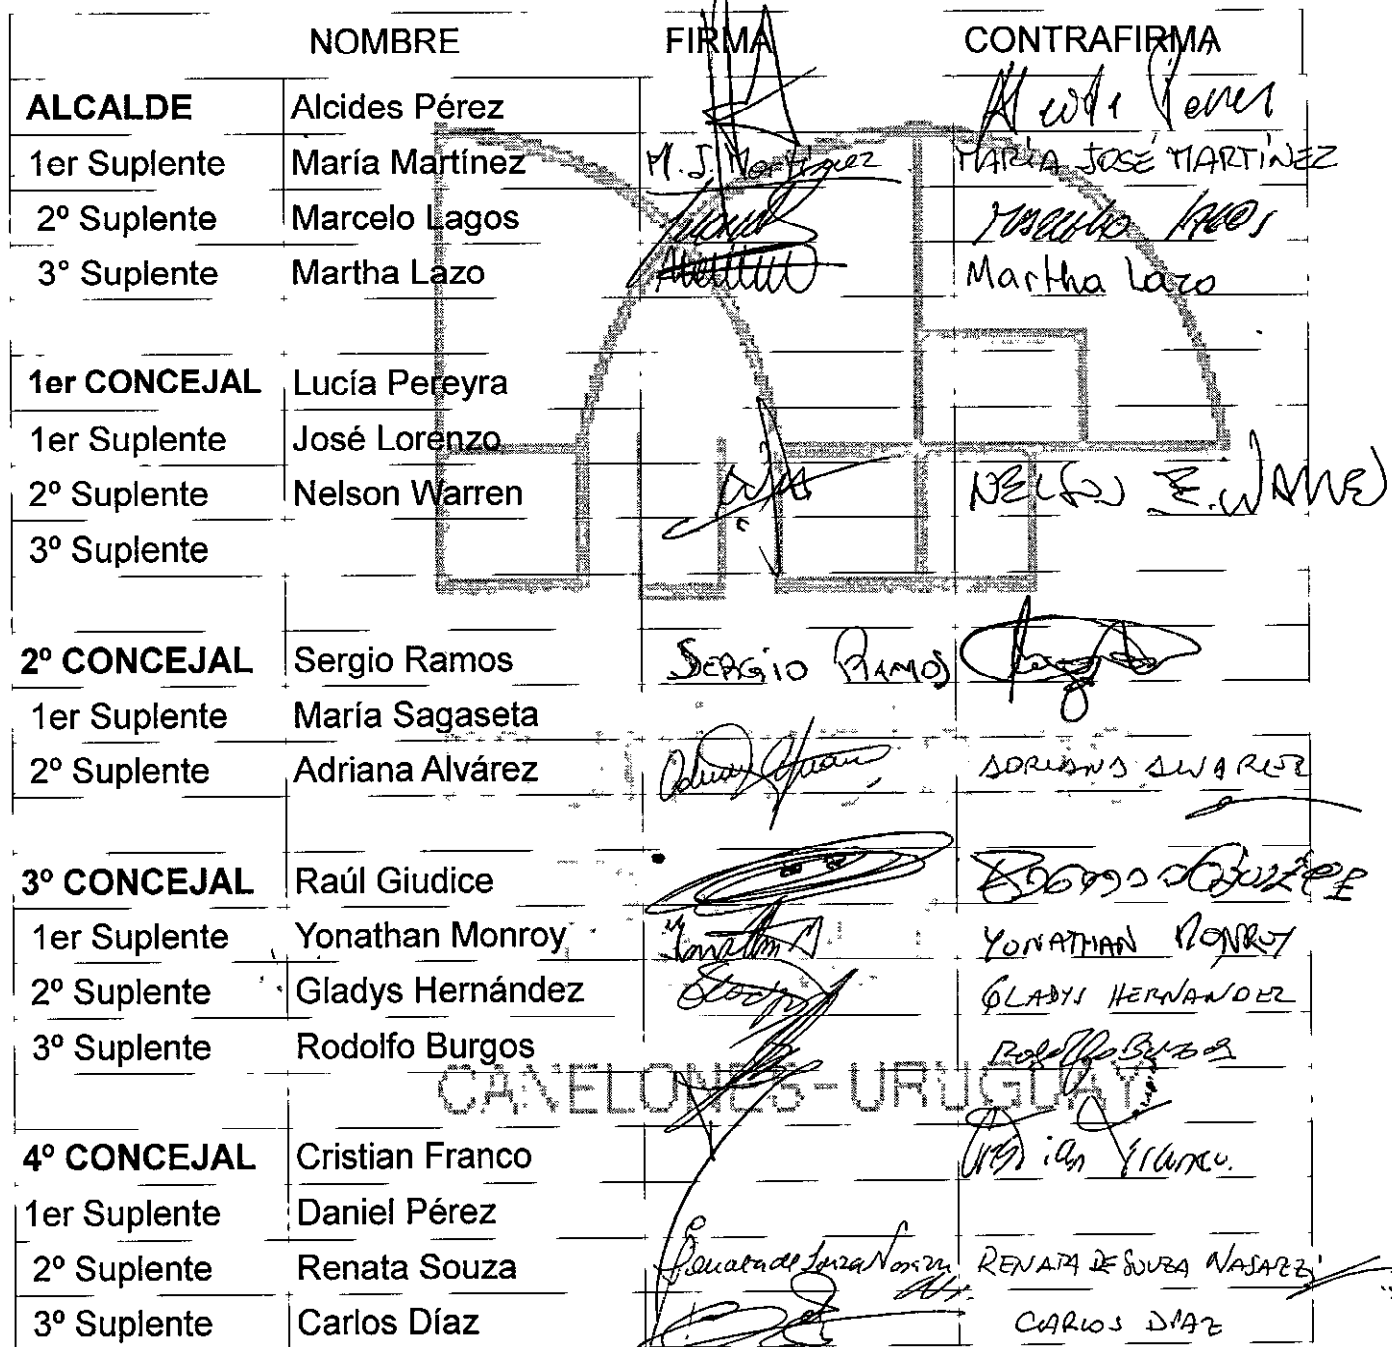 NOMBRE FIRMA CONTRAFIRMA
ALCALDE Alcides Pérez
1er Suplente María Martínez M. J. Martínez MARÍA JOSÉ MARTÍNEZ
2º Suplente Marcelo Lagos
3° Suplente Martha Lazo Martha Lazo
1er CONCEJAL Lucía Pereyra
1er Suplente José Lorenzo
2º Suplente Nelson Warren
3º Suplente
2º CONCEJAL Sergio Ramos SERGIO RAMOS
1er Suplente María Sagaseta
2º Suplente Adriana Alvárez ADRIANA ALVAREZ
3º CONCEJAL Raúl Giudice
1er Suplente Yonathan Monroy YONATHAN MONROY
2º Suplente Gladys Hernández GLADYS HERNANDEZ
3º Suplente Rodolfo Burgos Rodolfo Burgos
CANELONES-URUGUAY
4º CONCEJAL Cristian Franco Cristian Franco.
1er Suplente Daniel Pérez
2º Suplente Renata Souza RENATA DE SOUZA
3º Suplente Carlos Díaz CARLOS DÍAZ